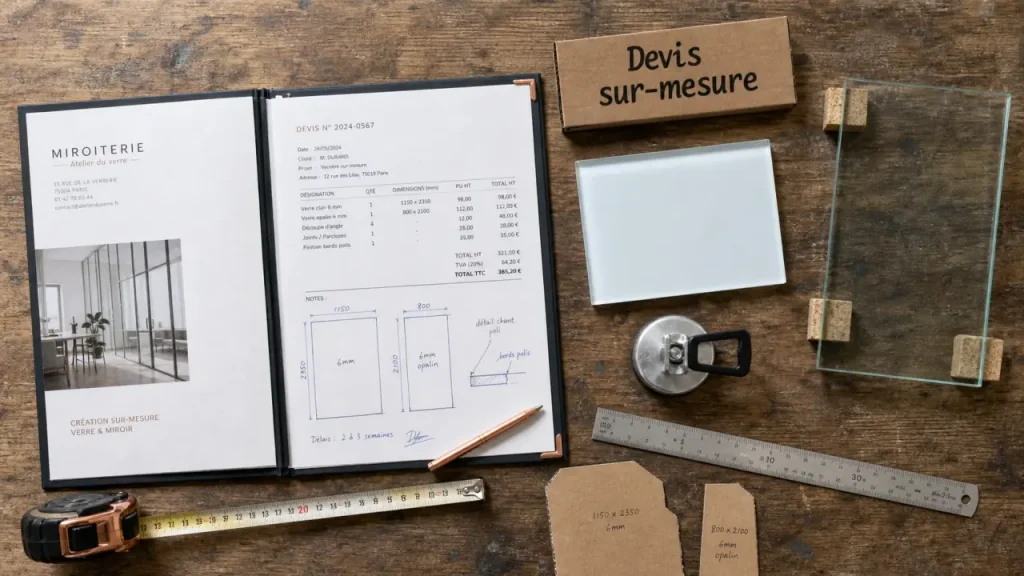 MIROITERIE
Atelier du verre
75004 PARIS
CRÉATION SUR-MESURE
VERRE & MIROIR
DEVIS N° 2024-0567
Date : 24/05/2024
Client : M. DURAND
Adresse : 12 rue des Lilas, 75019 Paris
DÉSIGNATION QTÉ DIMENSIONS (mm) PU HT TOTAL HT
Verre clair 6 mm 1 1150 x 2350 98,00 98,00 €
Verre opalin 6 mm 1 800 x 2100 112,00 112,00 €
Découpe d'angle 4 - 12,00 48,00 €
Joints / Parcloses 1 - 28,00 28,00 €
Finition bords polis 1 - 35,00 35,00 €
TOTAL HT 321,00 €
TVA (20%) 64,20 €
TOTAL TTC 385,20 €
NOTES :
1150
2350
6mm
800
2100
6mm
opalin
détail chant
poli
bords polis
Délais : 2 à 3 semaines
Devis
sur-mesure
1150 x 2350
6mm
800 x 2100
6mm
opalin
20